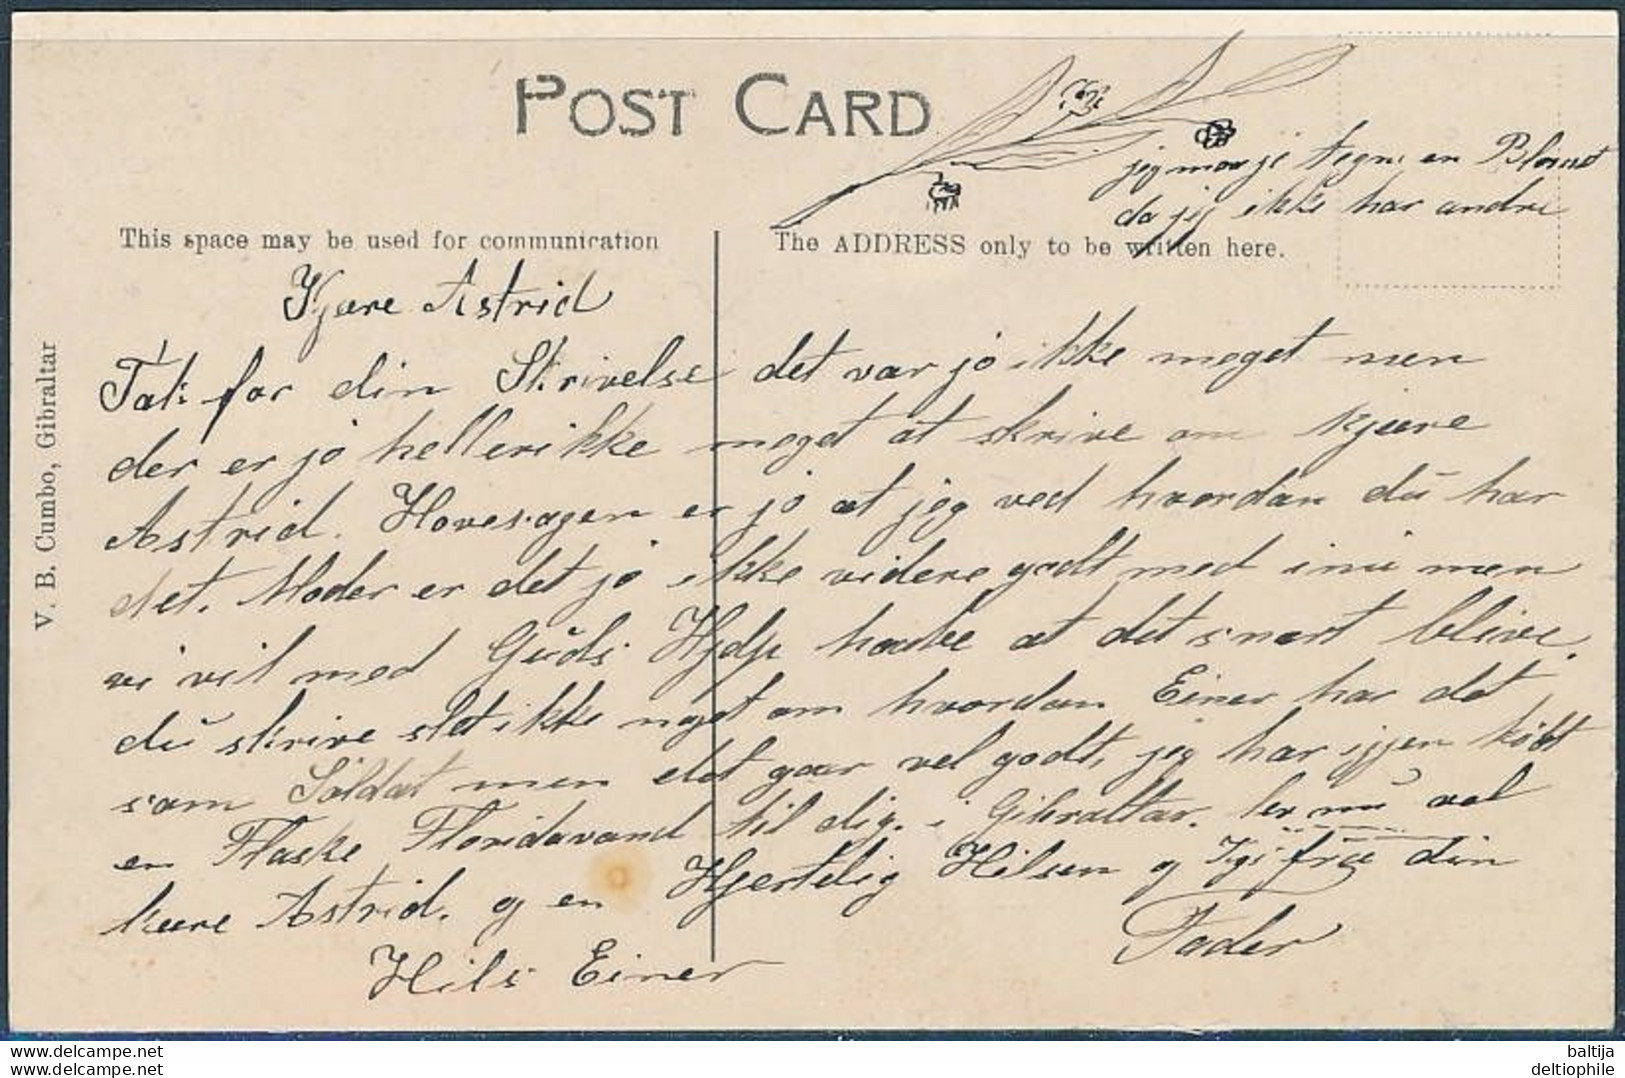 POST CARD
jeg maa jo tegne en Blomst
da jeg ikke har andre
This space may be used for communication
The ADDRESS only to be written here.
V. B. Cumbo, Gibraltar
Kjære Astrid
Tak for din Skrivelse det var jo ikke meget men
der er jo heller ikke meget at skrive om kjære
Astrid. Hovesagen er jo at jeg ved hvordan du har
det. Moder er det jo ikke videre godt med inu men
vi vil med Guds Hjelp haabe at det snart blive.
du skrive slet ikke noget om hvordan Einer har det
som Soldat men det gaar vel godt, jeg har igjen købt
en Flaske Floridavand til dig. i Gibraltar. ler nu vel
kære Astrid. og en Hjertelig Hilsen og Kys fra din
Fader
Hils Einer
baltija
deltiophile